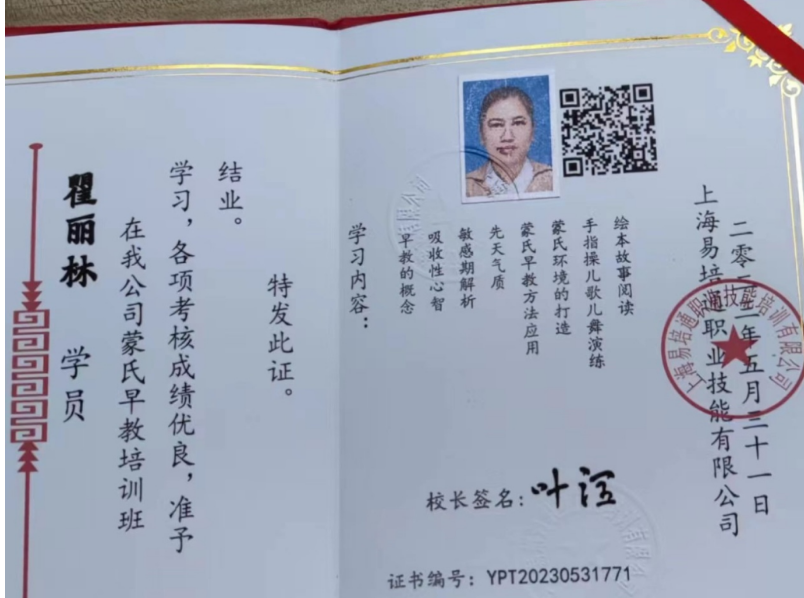 瞿丽林 学员
在我公司蒙氏早教培训班
学习，各项考核成绩优良，准予
结业。
特发此证。
学习内容：
早教的概念
吸收性心智
敏感期解析
先天气质
蒙氏早教方法应用
蒙氏环境的打造
手指操儿歌儿舞演练
绘本故事阅读
上海易培通职业技能有限公司
二零二三年五月三十一日
上海易培通职业技能培训有限公司
校长签名：叶
证书编号：YPT20230531771